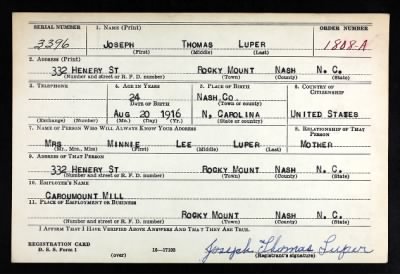 SERIAL NUMBER 1. NAME (Print) ORDER NUMBER
3396 JOSEPH THOMAS LUPER 1808-A
(First) (Middle) (Last)
2. ADDRESS (Print)
332 HENERY ST ROCKY MOUNT NASH N. C.
(Number and street or R. F. D. number) (Town) (County) (State)
3. TELEPHONE 4. AGE IN YEARS 5. PLACE OF BIRTH 6. COUNTRY OF CITIZENSHIP
24 NASH CO.
DATE OF BIRTH (Town or county)
AUG 20 1916 N. CAROLINA UNITED STATES
(Exchange) (Number) (Mo.) (Day) (Yr.) (State or country)
7. NAME OF PERSON WHO WILL ALWAYS KNOW YOUR ADDRESS 8. RELATIONSHIP OF THAT PERSON
MRS MINNIE LEE LUPER MOTHER
(Mr., Mrs., Miss) (First) (Middle) (Last)
9. ADDRESS OF THAT PERSON
332 HENERY ST ROCKY MOUNT NASH N. C.
(Number and street or R. F. D. number) (Town) (County) (State)
10. EMPLOYER'S NAME
CAROUMOUNT MILL
11. PLACE OF EMPLOYMENT OR BUSINESS
ROCKY MOUNT NASH N. C.
(Number and street or R. F. D. number) (Town) (County) (State)
I AFFIRM THAT I HAVE VERIFIED ABOVE ANSWERS AND THAT THEY ARE TRUE.
REGISTRATION CARD
D. S. S. Form 1 16-17105 Joseph Thomas Luper
(over) (Registrant's signature)